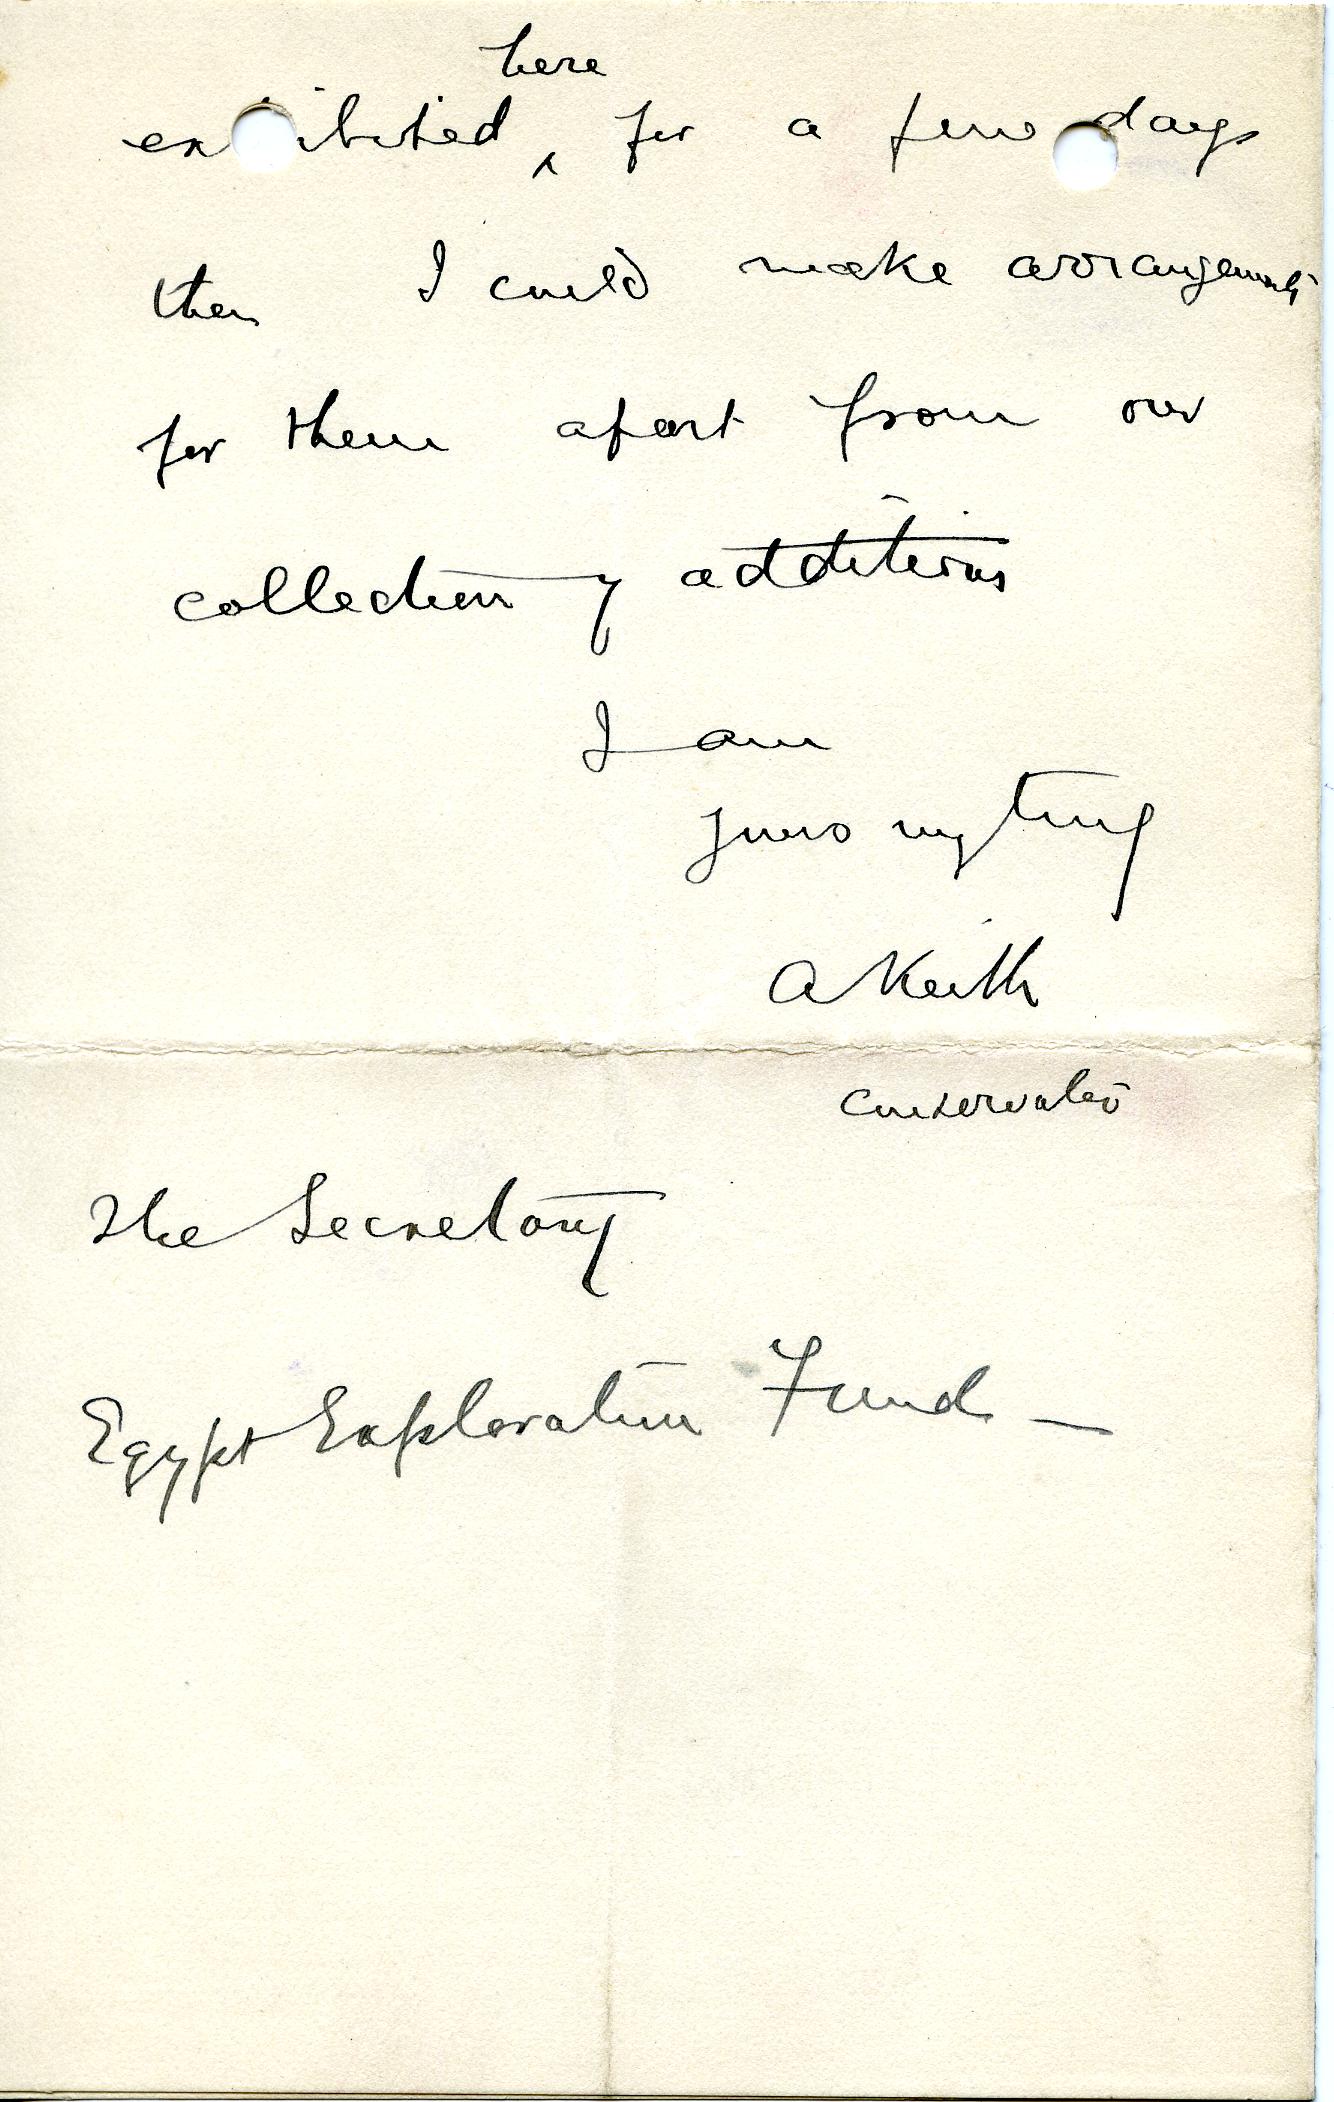 here
exhibited ‸ for a few days
then I could make arrangements
for them apart from our
collection of additions
I am
yours very truly
A Keith
Conservator
The Secretary
Egypt Exploration Fund —